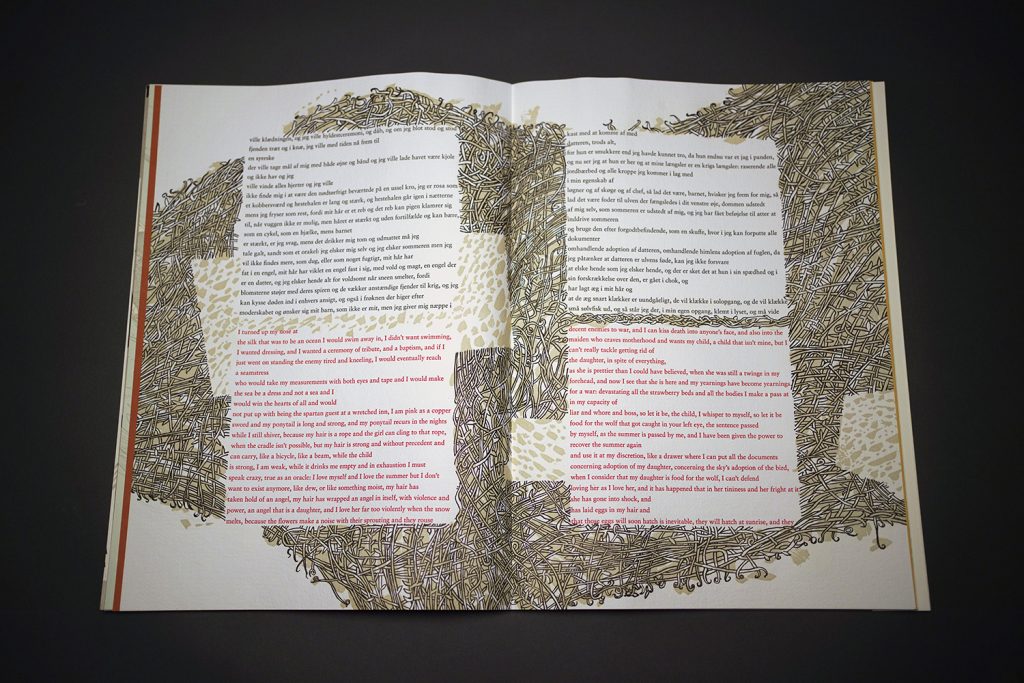 ville klædningen, og jeg ville hyldestceremoni, og dåb, og om jeg blot stod og stod
fjenden træt og i knæ, jeg ville med tiden nå frem til
en syerske
der ville tage mål af mig med både øjne og bånd og jeg ville lade havet være kjole
og ikke hav og jeg
ville vinde alles hjerter og jeg ville
ikke finde mig i at være den nødtørftigt beværtede på en ussel kro, jeg er rosa som
et kobbersværd og hestehalen er lang og stærk, og hestehalen går igen i nætterne
mens jeg fryser som rest, fordi mit hår er et reb og det reb kan pigen klamre sig
til, når vuggen ikke er mulig, men håret er stærkt og uden fortilfælde og kan bære,
som en cykel, som en bjælke, mens barnet
er stærkt, er jeg svag, mens det drikker mig tom og udmattet må jeg
tale galt, sandt som et orakel: jeg elsker mig selv og jeg elsker sommeren men jeg
vil ikke findes mere, som dug, eller som noget fugtigt, mit hår har
fat i en engel, mit hår har viklet en engel fast i sig, med vold og magt, en engel der
er en datter, og jeg elsker hende alt for voldsomt når sneen smelter, fordi
blomsterne støjer med deres spiren og de vækker anstændige fjender til krig, og jeg
kan kysse døden ind i enhvers ansigt, og også i frøknen der higer efter
moderskabet og ønsker sig mit barn, som ikke er mit, men jeg giver mig næppe i
I turned up my nose at
the silk that was to be an ocean I would swim away in, I didn't want swimming,
I wanted dressing, and I wanted a ceremony of tribute, and a baptism, and if I
just went on standing the enemy tired and kneeling, I would eventually reach
a seamstress
who would take my measurements with both eyes and tape and I would make
the sea be a dress and not a sea and I
would win the hearts of all and would
not put up with being the spartan guest at a wretched inn, I am pink as a copper
sword and my ponytail is long and strong, and my ponytail recurs in the nights
while I still shiver, because my hair is a rope and the girl can cling to that rope,
when the cradle isn't possible, but my hair is strong and without precedent and
can carry, like a bicycle, like a beam, while the child
is strong, I am weak, while it drinks me empty and in exhaustion I must
speak crazy, true as an oracle: I love myself and I love the summer but I don't
want to exist anymore, like dew, or like something moist, my hair has
taken hold of an angel, my hair has wrapped an angel in itself, with violence and
power, an angel that is a daughter, and I love her far too violently when the snow
melts, because the flowers make a noise with their sprouting and they rouse
kast med at komme af med
datteren, trods alt,
for hun er smukkere end jeg havde kunnet tro, da hun endnu var et jag i panden,
og nu ser jeg at hun er her og at mine længsler er en krigs længsler: raserende alle
jordbærbed og alle kroppe jeg kommer i lag med
i min egenskab af
løgner og af skøge og af chef, så lad det være, barnet, hvisker jeg frem for mig, så
lad det være foder til ulven der fængsledes i dit venstre øje, dommen udstedt
af mig selv, som sommeren er udstedt af mig, og jeg har fået beføjelse til atter at
inddrive sommeren
og bruge den efter forgodtbefindende, som en skuffe, hvor i jeg kan forputte alle
dokumenter
omhandlende adoption af datteren, omhandlende himlens adoption af fuglen, da
jeg påtænker at datteren er ulvens føde, kan jeg ikke forsvare
at elske hende som jeg elsker hende, og der er sket det at hun i sin spædhed og i
sin forskrækkelse over den, er gået i chok, og
har lagt æg i mit hår og
at de æg snart klækker er uundgåeligt, de vil klække i solopgang, og de vil klække
små sølvfisk ud, og så står jeg der, i min egen opgang, klemt i lyset, og må vide
decent enemies to war, and I can kiss death into anyone's face, and also into the
maiden who craves motherhood and wants my child, a child that isn't mine, but I
can't really tackle getting rid of
the daughter, in spite of everything,
as she is prettier than I could have believed, when she was still a twinge in my
forehead, and now I see that she is here and my yearnings have become yearnings
for a war: devastating all the strawberry beds and all the bodies I make a pass at
in my capacity of
liar and whore and boss, so let it be, the child, I whisper to myself, so let it be
food for the wolf that got caught in your left eye, the sentence passed
by myself, as the summer is passed by me, and I have been given the power to
recover the summer again
and use it at my discretion, like a drawer where I can put all the documents
concerning adoption of my daughter, concerning the sky's adoption of the bird,
when I consider that my daughter is food for the wolf, I can't defend
loving her as I love her, and it has happened that in her tininess and her fright at it
she has gone into shock, and
has laid eggs in my hair and
that those eggs will soon hatch is inevitable, they will hatch at sunrise, and they